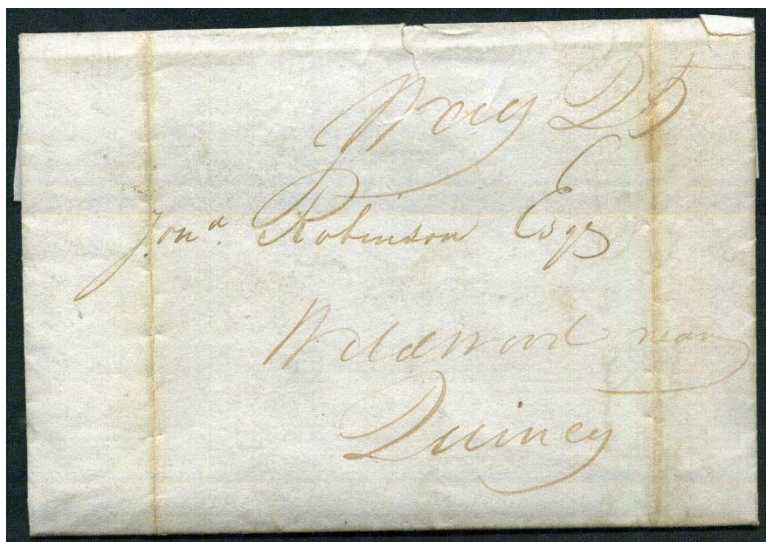 Way 25
Jonª. Robinson Esqr
Wildwood near
Quincy